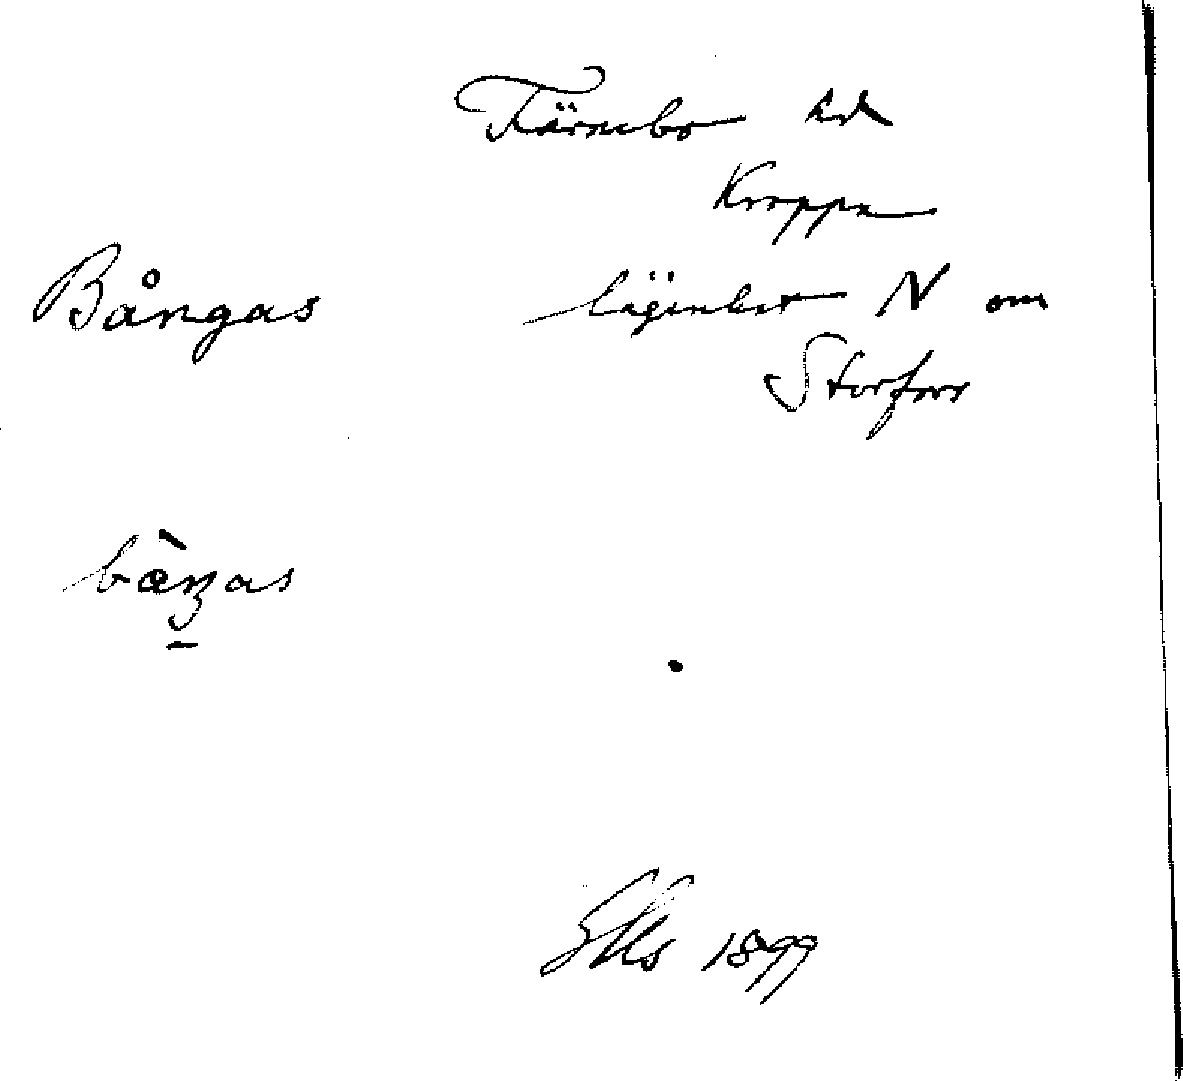 Färnebo hd
Kroppa
Bångas lägenhet N om
Storfors
bàŋas
1899